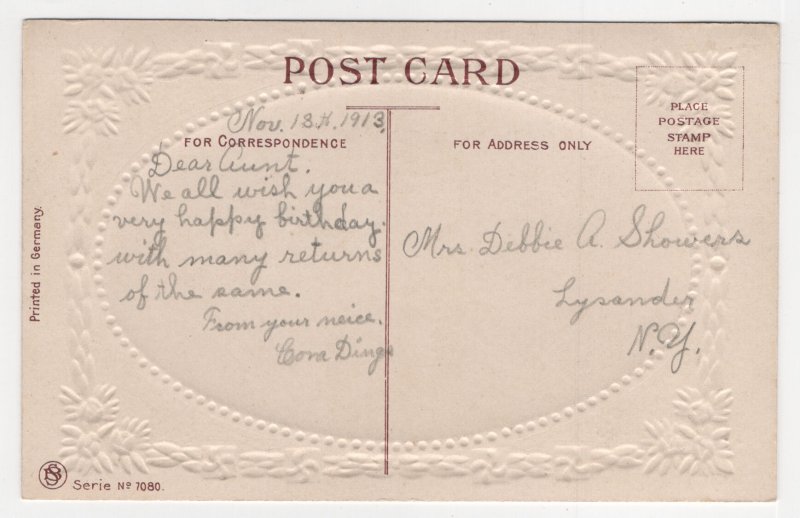 POST CARD
PLACE
POSTAGE
STAMP
HERE
Nov. 13th, 1913,
FOR CORRESPONDENCE
FOR ADDRESS ONLY
Dear Aunt.
We all wish you a
very happy birthday.
with many returns
of the same.
From your neice.
Cora Dings
Mrs. Debbie A. Showers
Lysander
N.Y.
Printed in Germany.
Serie Nº 7080.